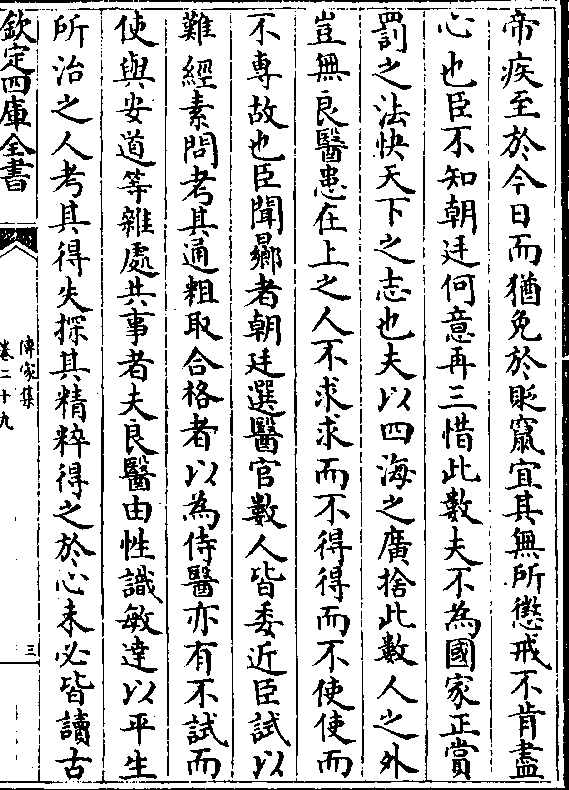 帝疾至於今日而猶免於貶竄宜其無所懲戒不肯盡
心也臣不知朝廷何意再三惜此數夫不為國家正賞
罰之法快天下之志也夫以四海之廣捨此數人之外
豈無良醫患在上之人不求求而不得得而不使使而
不專故也臣聞曏者朝廷選醫官數人皆委近臣試以
難經素問考其通粗取合格者以為侍醫亦有不試而
使與安道等雜處共事者夫良醫由性識敏達以平生
所治之人考其得失探其精粹得之於心未必皆讀古
欽定四庫全書
傳家集
卷二十九
三